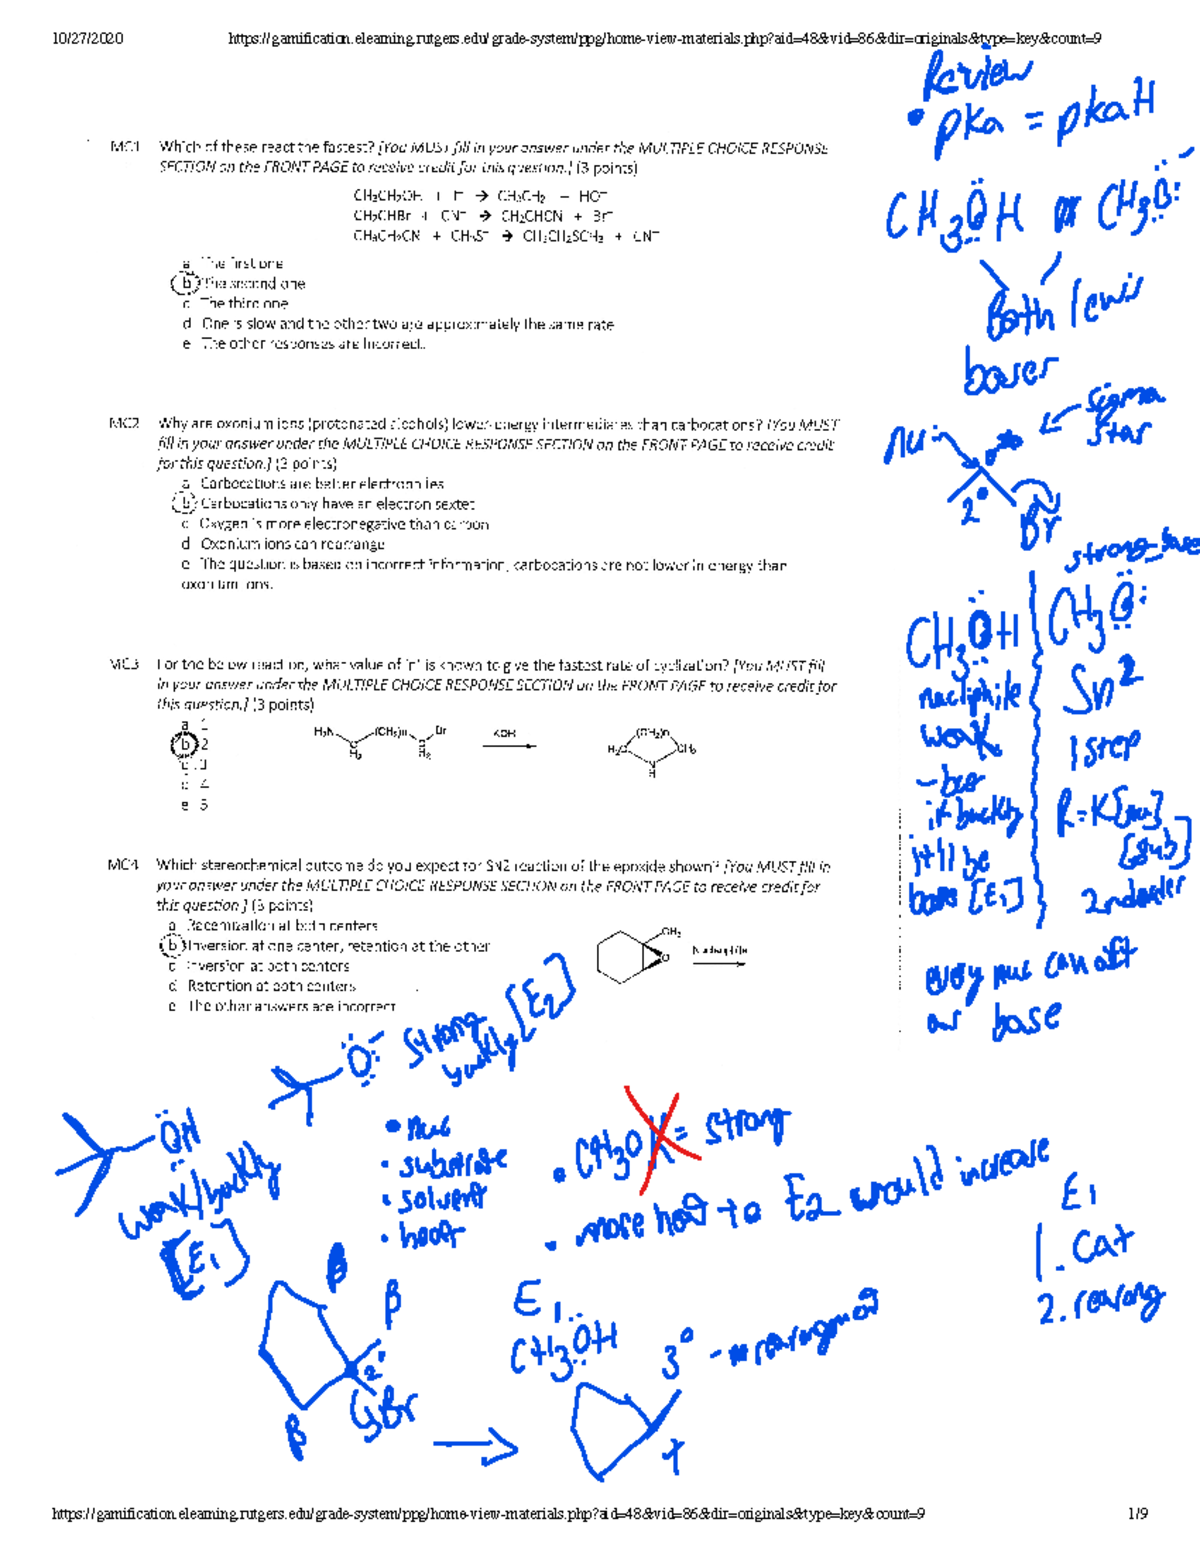 10/27/2020 https://gamification.elearning.rutgers.edu/grade-system/ppg/home-view-materials.php?aid=48&vid=86&dir=originals&type=key&count=9
Review
• pka = pkaH
MC1 Which of these react the fastest? [You MUST fill in your answer under the MULTIPLE CHOICE RESPONSE
SECTION on the FRONT PAGE to receive credit for this question.] (3 points)
a The first one
b The second one
c The third one
d One is slow and the other two are approximately the same rate
e The other responses are incorrect.
CH3ÖH or CH3Ö:
Both lewis
bases
sigma
star
nu:
2°
Br
MC2 Why are oxonium ions (protonated alcohols) lower-energy intermediates than carbocations? [You MUST
fill in your answer under the MULTIPLE CHOICE RESPONSE SECTION on the FRONT PAGE to receive credit
for this question.] (3 points)
a Carbocations are better electrophiles
b Carbocations only have an electron sextet
c Oxygen is more electronegative than carbon
d Oxonium ions can rearrange
e The question is based on incorrect information, carbocations are not lower in energy than
oxonium ions.
strong
CH3ÖH
nucliphile
weak
CH3Ö:
Sn2
1 step
2nd order
MC3 For the below reaction, what value of 'n' is known to give the fastest rate of cyclization? [You MUST fill
in your answer under the MULTIPLE CHOICE RESPONSE SECTION on the FRONT PAGE to receive credit for
this question.] (3 points)
a 1
b 2
c 3
d 4
e 5
H2N (CH2)n Br KOH (CH2)n
it bulky
it'll be
base [E1]
MC4 Which stereochemical outcome do you expect for SN2 reaction of the epoxide shown? [You MUST fill in
your answer under the MULTIPLE CHOICE RESPONSE SECTION on the FRONT PAGE to receive credit for
this question.] (3 points)
a Racemization at both centers
b Inversion at one center, retention at the other
c Inversion at both centers
d Retention at both centers
e The other answers are incorrect
CH3
O
Nucleophile
every nuc can act
as base
strong
[E2]
ÖH
weak/bulky
[E1]
• nuc
• substrate
• solvent
• heat
• CH3OK = strong
• more heat to E2 would increase
E1
1. Cat
2. rearang
β
β
β
2°
Br
E1
CH3ÖH
3°